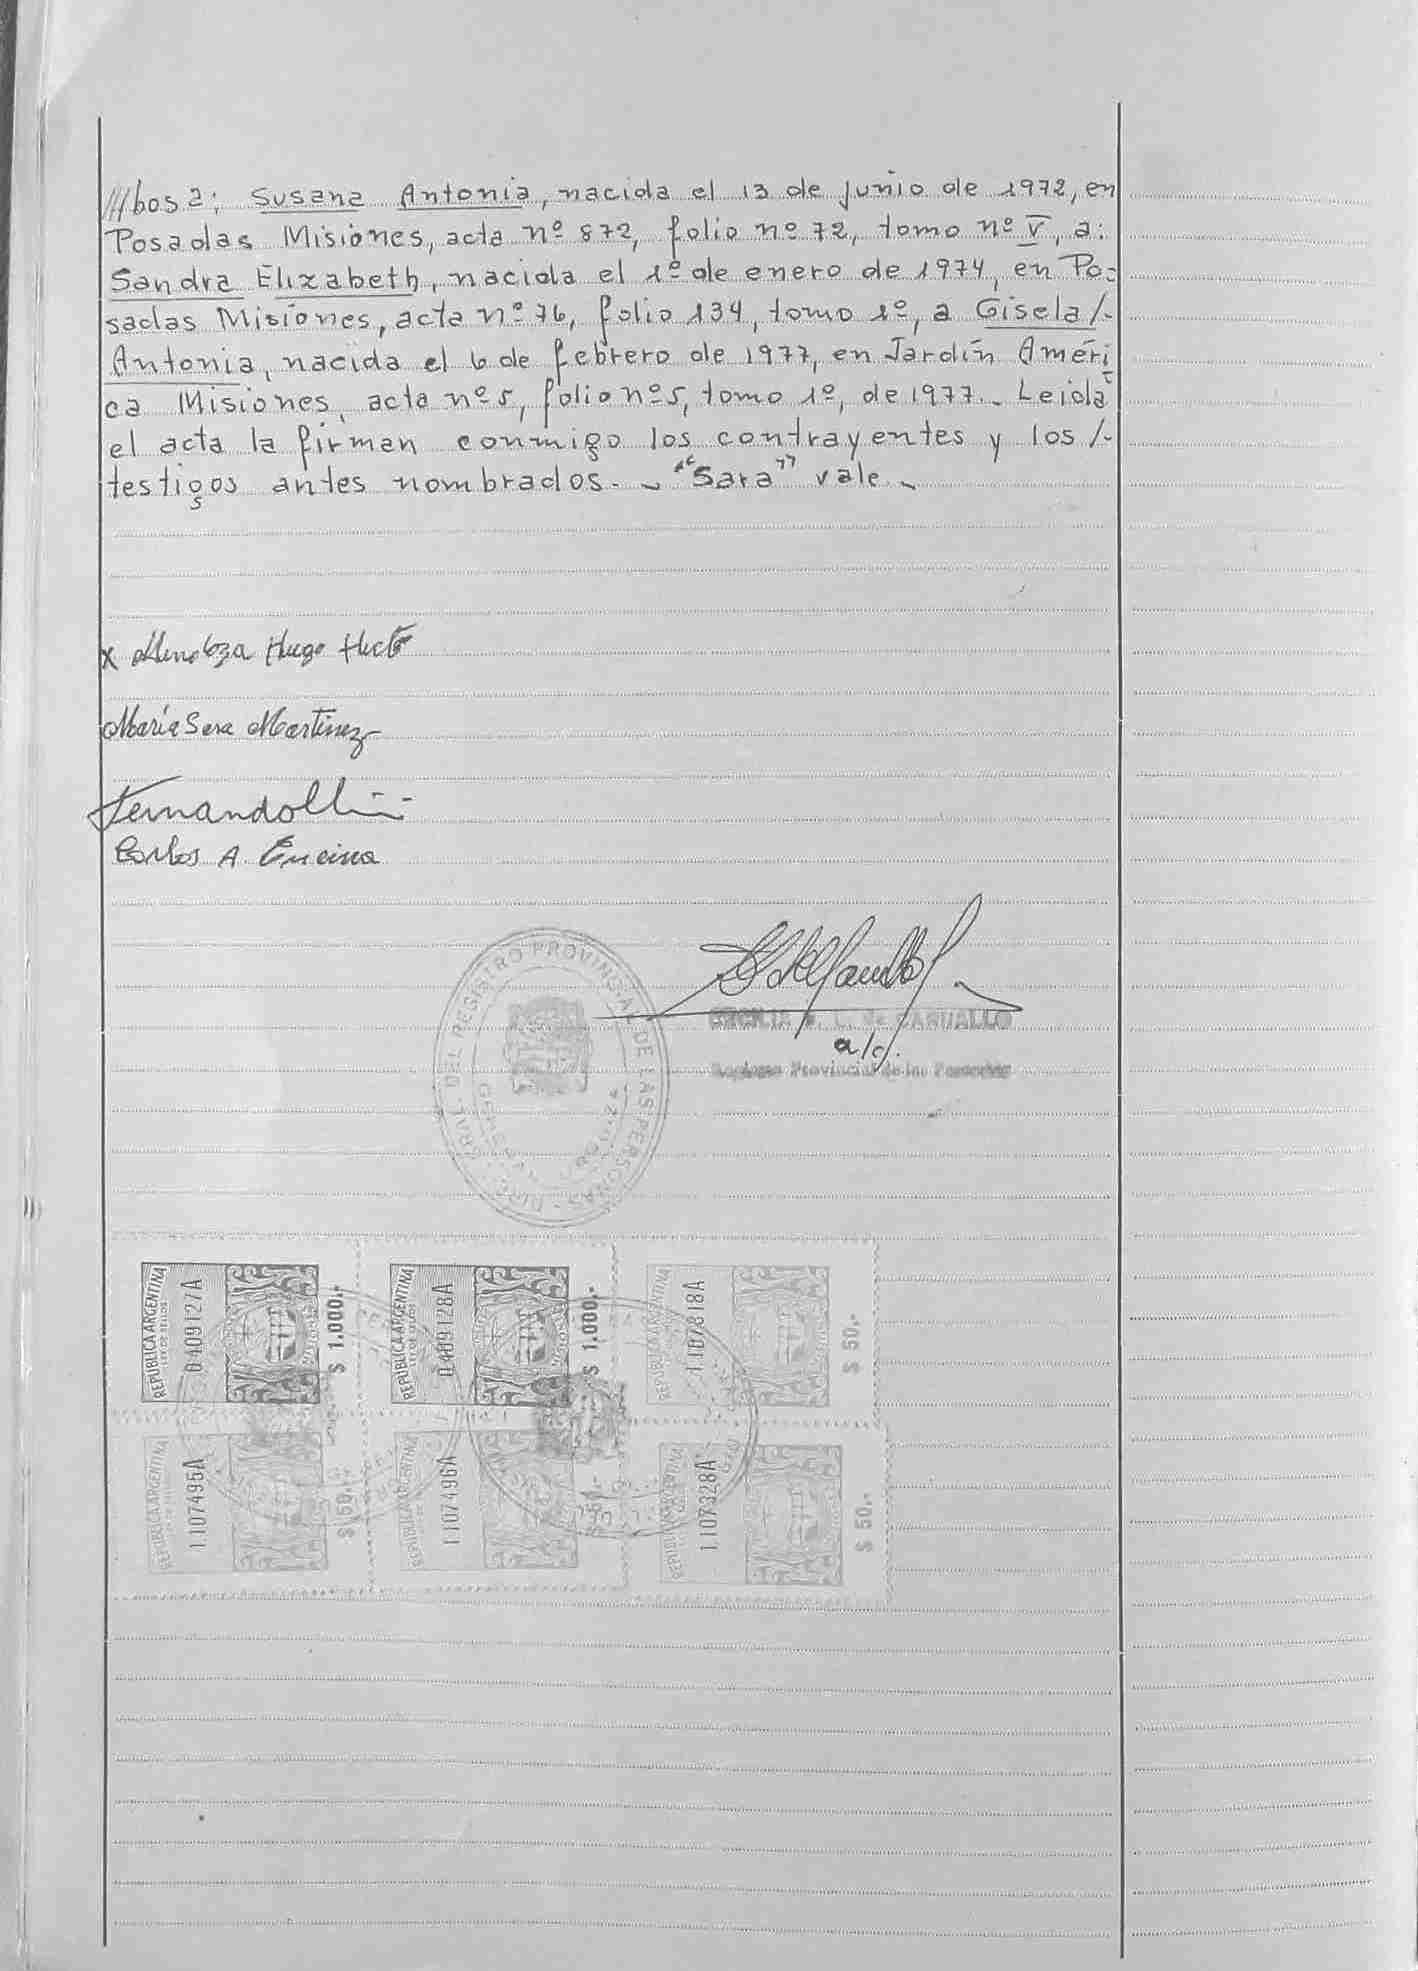 ///bos a; Susana Antonia, nacida el 13 de junio de 1972, en
Posadas Misiones, acta nº 872, folio nº 72, tomo nº V, a:
Sandra Elizabeth, nacida el 1º de enero de 1974, en Po-
sadas Misiones, acta nº 76, folio 134, tomo 1º, a Gisela/-
Antonia, nacida el 6 de febrero de 1977, en Jardín Améri
ca Misiones, acta nº 5, folio nº 5, tomo 1º, de 1977.- Leida
el acta la firman conmigo los contrayentes y los /-
testigos antes nombrados.- "Sara" vale.-
x Mendoza Hugo Hect
María Sara Martinez
Carlos A. Encina
DEL REGISTRO PROVINCIAL DE LAS PERSONAS
CECILIA de CARVALLO
a/c.
Provincial de las Personas
REPUBLICA ARGENTINA
0409127A
$ 1.000.-
REPUBLICA ARGENTINA
0409128A
$ 1.000.-
REPUBLICA ARGENTINA
1107318A
$ 50.-
REPUBLICA ARGENTINA
1107495A
$ 50.-
REPUBLICA ARGENTINA
1107496A
REPUBLICA ARGENTINA
1107328A
$ 50.-